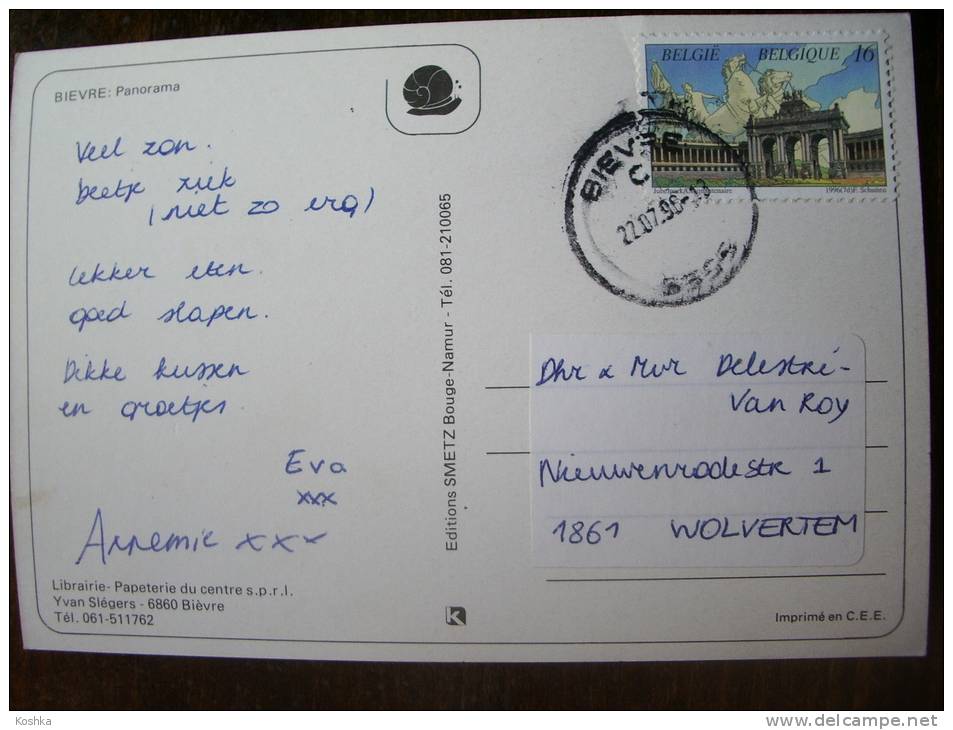 BIEVRE: Panorama
Veel zon.
beetje ziek
(niet zo erg)
lekker eten.
goed slapen.
Dikke kussen
en groetjes
Eva
xxx
Annemie xxx
Librairie- Papeterie du centre s.p.r.l.
Yvan Slégers - 6860 Bièvre
Tél. 061-511762
Editions SMETZ Bouge-Namur - Tél. 081-210065
K
BELGIË BELGIQUE 16
1996
BIEVRE
C
22.07.96
Dhr & Mvr Delestré-
Van Roy
Nieuwenrodestr 1
1861 WOLVERTEM
Imprimé en C.E.E.
Koshka
www.delcampe.net